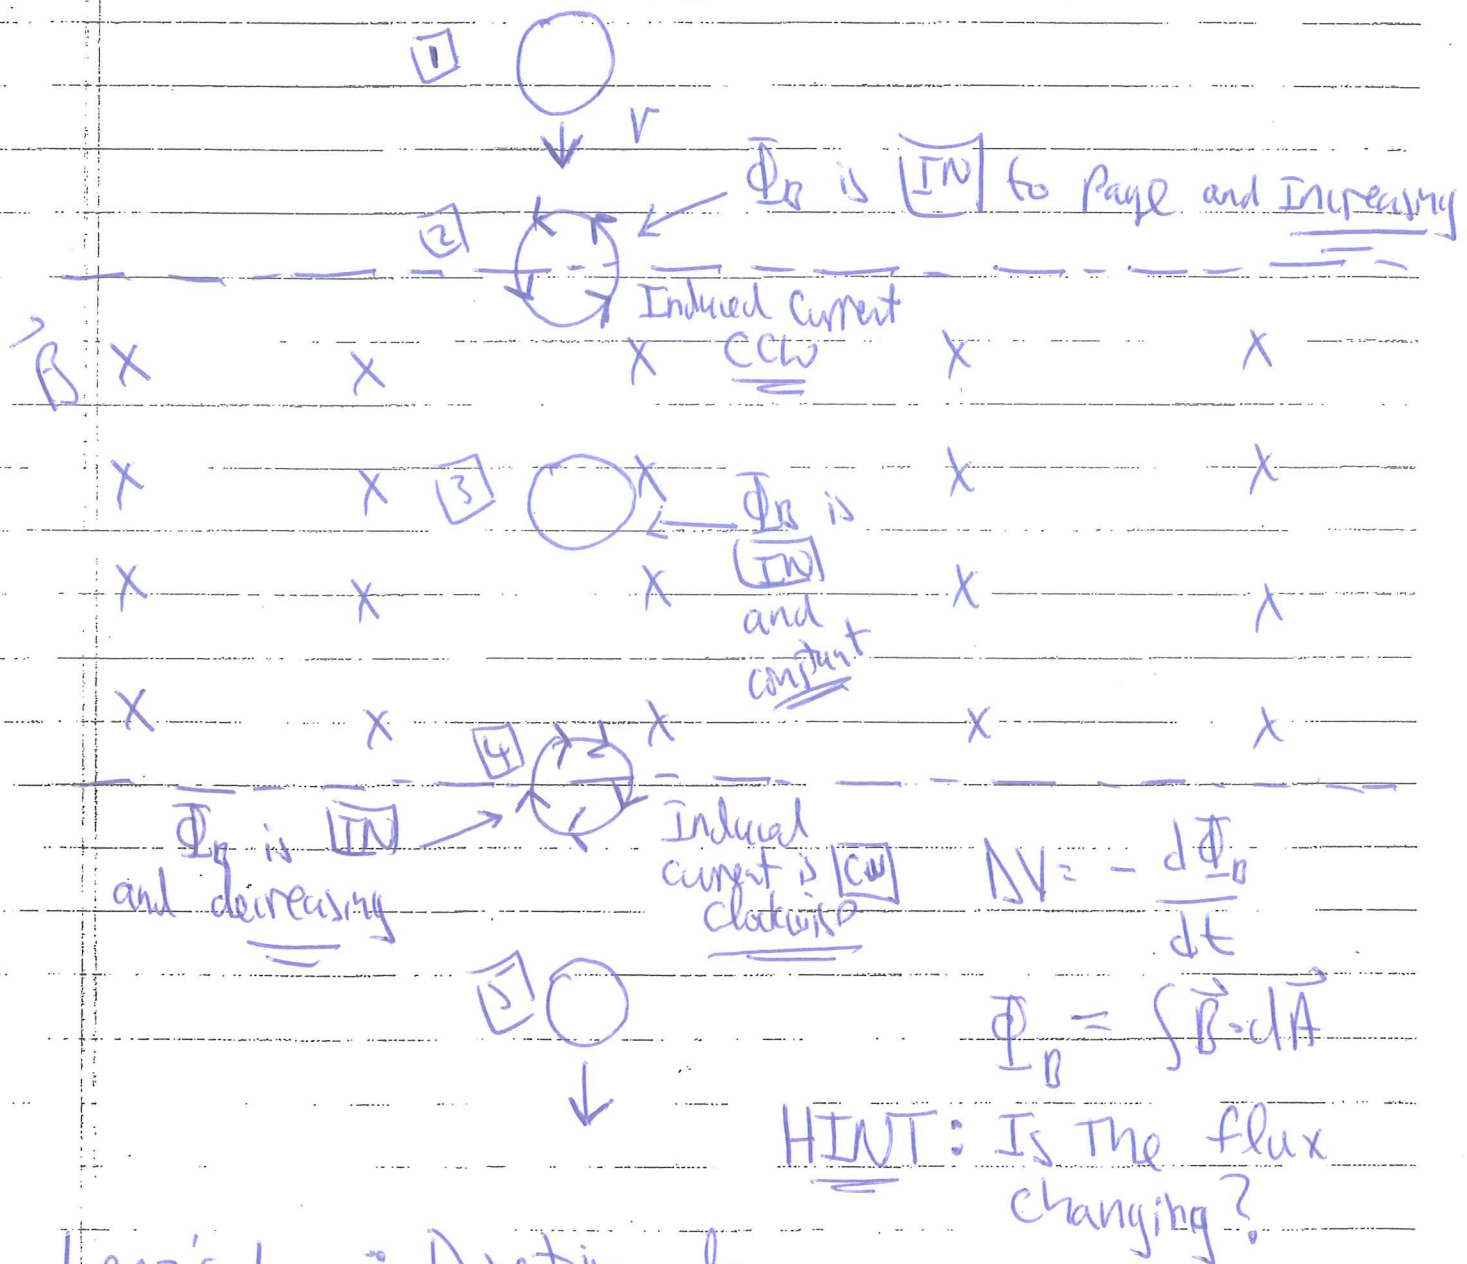 1
v
Φ_B is IN to Page and Increasing
2
Induced Current
CCW
B⃗ X X X X X
X X 3 X X X
Φ_B is
IN
X X X X X
and
constant
X X X X X
4
Φ_B is IN
and decreasing
Induced
current is CW
Clockwise
ΔV = - dΦ_B
dt
5
Φ_B = ∫B⃗·dA⃗
HINT: Is The flux
changing?